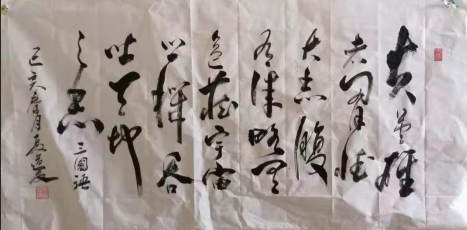 夫英雄
者胸怀
大志腹
有
包藏宇宙
之機吞
吐天地
之志 三國語
己亥年月